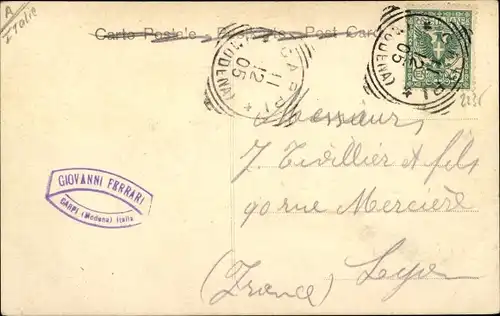 A
Italie
Carte Postale - Post Card
CARPI
11
12
05
(MODENA)
CARPI
12
05
(MODENA)
Messieurs
J. Tivillier et fils
90 rue Mercière
(France) Lyon
GIOVANNI FERRARI
CARPI (Modena) Italia